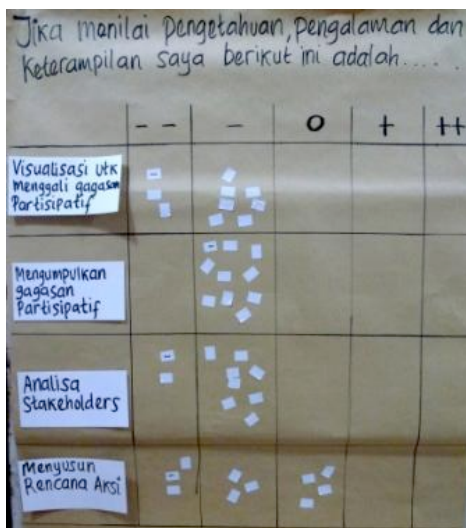 Jika menilai Pengetahuan, pengalaman dan
Keterampilan saya berikut ini adalah.....
-- - O + ++
Visualisasi utk
menggali gagasan
Partisipatif
Mengumpulkan
gagasan
Partisipatif
Analisa
Stakeholders
Menyusun
Rencana Aksi